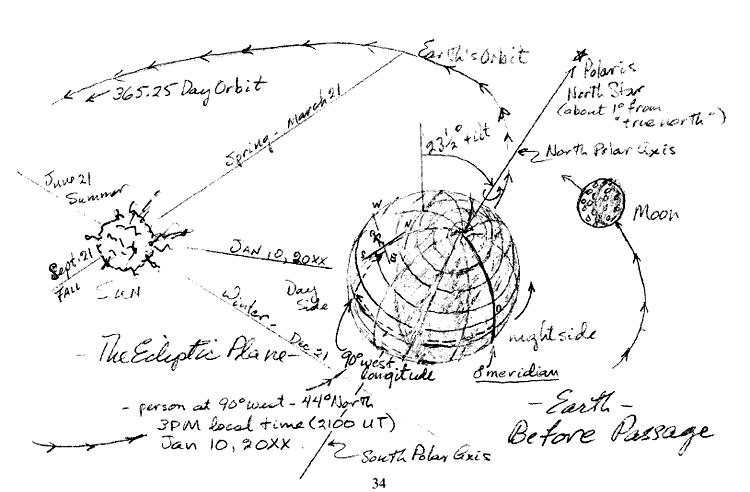 Earth's Orbit
365.25 Day Orbit
Polaris
North Star
(about 1° from
"true north")
Spring - March 21
23 1/2° tilt
North Polar Axis
June 21
Summer
Moon
W
N
S
Sept. 21
FALL
SUN
JAN 10, 20XX
Day
Side
Winter - Dec 21
nightside
- The Ecliptic Plane -
90° west
longitude
0° meridian
- person at 90° west - 44° North
3PM local time (2100 UT)
Jan 10, 20XX
- Earth -
Before Passage
South Polar Axis
34